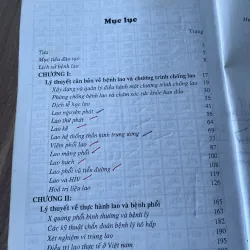 Mục lục
Trang
Tựa
Mục tiêu đào tạo
Lịch sử bệnh lao
CHƯƠNG I:
Lý thuyết căn bản về bệnh lao và chương trình chống lao 17
Xây dựng và quản lý điều hành một chương trình chống lao 19
Phòng chống bệnh lao và chăm sóc sức khỏe ban đầu
Dịch tễ học lao
Lao nguyên phát
Lao thứ phát
Lao kê 69
Lao hệ thống thần kinh trung ương 77
Viêm phổi lao
Lao màng phổi
Lao hạch
Lao phổi và tiểu đường
Lao và HIV
Hoá trị liệu lao 126
CHƯƠNG II:
Lý thuyết về thực hành lao và bệnh phổi 165
X quang phổi bình thường và bệnh lý 165
Các kỹ thuật chẩn đoán bệnh lý hô hấp 182
Xét nghiệm vi trùng lao 195
Điều trị lao thực tế ở Việt Nam